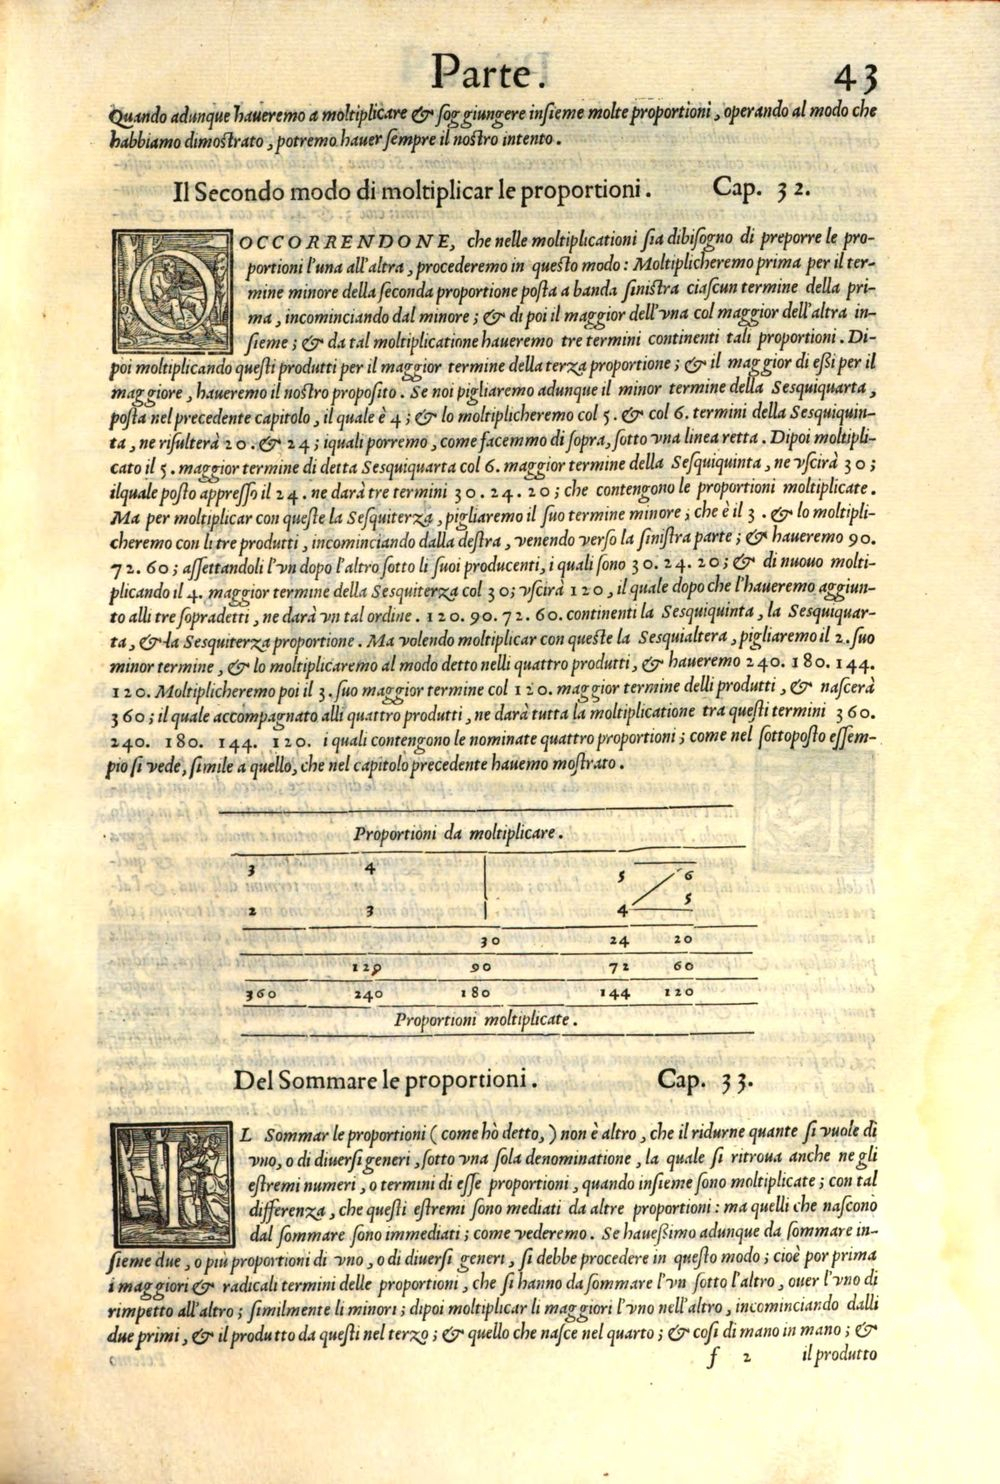 Parte. 43
Quando adunque haueremo a moltiplicare & soggiungere insieme molte proportioni, operando al modo che
habbiamo dimostrato, potremo hauer sempre il nostro intento.
Il Secondo modo di moltiplicar le proportioni. Cap. 32.
OCCORRENDONE, che nelle moltiplicationi sia dibisogno di preporre le pro-
portioni l'una all'altra, procederemo in questo modo: Moltiplicheremo prima per il ter-
mine minore della seconda proportione posta a banda sinistra ciascun termine della pri-
ma, incominciando dal minore; & di poi il maggior dell'vna col maggior dell'altra in-
sieme; & da tal moltiplicatione haueremo tre termini continenti tali proportioni. Di-
poi moltiplicando questi produtti per il maggior termine della terza proportione; & il maggior di essi per il
maggiore, haueremo il nostro proposito. Se noi pigliaremo adunque il minor termine della Sesquiquarta,
posta nel precedente capitolo, il quale è 4; & lo moltiplicheremo col 5. & col 6. termini della Sesquiquin-
ta, ne risulterà 20. & 24; iquali porremo, come facemmo di sopra, sotto vna linea retta. Dipoi moltipli-
cato il 5. maggior termine di detta Sesquiquarta col 6. maggior termine della Sesquiquinta, ne vscirà 30;
ilquale posto appresso il 24. ne darà tre termini 30. 24. 20; che contengono le proportioni moltiplicate.
Ma per moltiplicar con queste la Sesquiterza, pigliaremo il suo termine minore; che è il 3. & lo moltipli-
cheremo con li tre produtti, incominciando dalla destra, venendo verso la sinistra parte; & haueremo 90.
72. 60; assettandoli l'vn dopo l'altro sotto li suoi producenti, i quali sono 30. 24. 20; & di nuouo molti-
plicando il 4. maggior termine della Sesquiterza col 30; vscirà 120, il quale dopo che l'haueremo aggiun-
to alli tre sopradetti, ne darà vn tal ordine. 120. 90. 72. 60. continenti la Sesquiquinta, la Sesquiquar-
ta, & la Sesquiterza proportione. Ma volendo moltiplicar con queste la Sesquialtera, pigliaremo il 2. suo
minor termine, & lo moltiplicaremo al modo detto nelli quattro produtti, & haueremo 240. 180. 144.
120. Moltiplicheremo poi il 3. suo maggior termine col 120. maggior termine delli produtti, & nascerà
360; il quale accompagnato alli quattro produtti, ne darà tutta la moltiplicatione tra questi termini 360.
240. 180. 144. 120. i quali contengono le nominate quattro proportioni; come nel sottoposto essem-
pio si vede, simile a quello, che nel capitolo precedente hauemo mostrato.
Proportioni da moltiplicare.
3 4 5 6
5
2 3 4
30 24 20
120 90 72 60
360 240 180 144 120
Proportioni moltiplicate.
Del Sommare le proportioni. Cap. 33.
IL Sommar le proportioni (come hò detto,) non è altro, che il ridurne quante si vuole di
vno, o di diuersi generi, sotto vna sola denominatione, la quale si ritroua anche ne gli
estremi numeri, o termini di esse proportioni, quando insieme sono moltiplicate; con tal
differenza, che questi estremi sono mediati da altre proportioni: ma quelli che nascono
dal sommare sono immediati; come vederemo. Se hauessimo adunque da sommare in-
sieme due, o più proportioni di vno, o di diuersi generi, si debbe procedere in questo modo; cioè por prima
i maggiori & radicali termini delle proportioni, che si hanno da sommare l'vn sotto l'altro, ouer l'vno di
rimpetto all'altro; similmente li minori; dipoi moltiplicar li maggiori l'vno nell'altro, incominciando dalli
due primi, & il produtto da questi nel terzo; & quello che nasce nel quarto; & cosi di mano in mano; &
f 2 il produtto